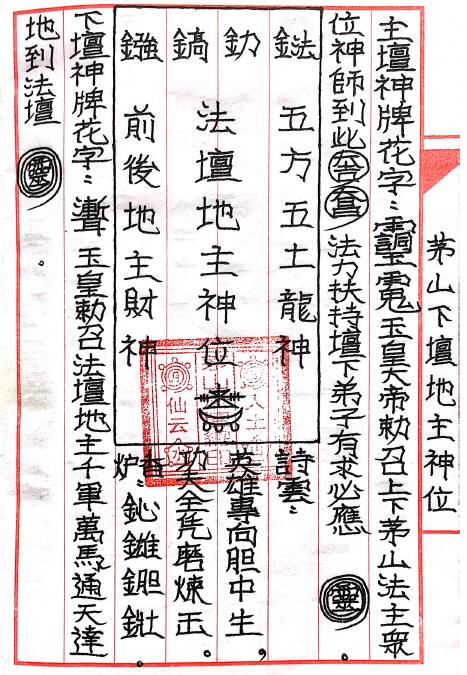 茅山下壇地主神位
主壇神牌花字：玉皇大帝勅召上下茅山法主眾
位神師到此法力扶持壇下弟子有求必應
五方五土龍神
法壇地主神位
前後地主財神
詩雲：
英雄專向胆中生
功夫全凭磨煉出
香炉：
下壇神牌花字：玉皇勅召法壇地主千軍萬馬通天達
地到法壇
靈